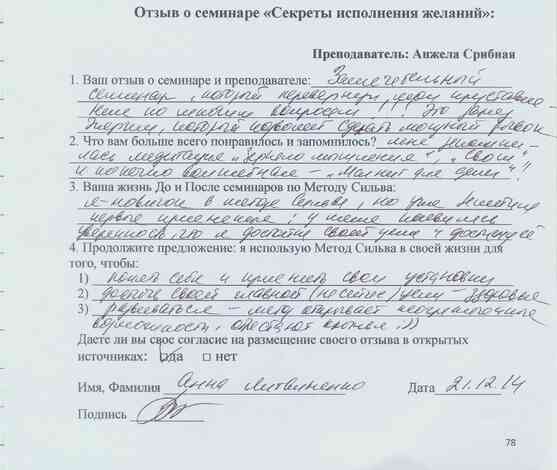 Отзыв о семинаре «Секреты исполнения желаний»:
Преподаватель: Анжела Срибная
1. Ваш отзыв о семинаре и преподавателе: Замечательный
семинар, который перевернул мои представле-
ния по многим вопросам! Это заряд
энергии, который позволяет сделать мощный рывок
2. Что вам больше всего понравилось и запомнилось? мне запомни-
лась медитация „Зеркало мышления",
и конечно волшебная – „Магнит для денег"!
3. Ваша жизнь До и После семинаров по Методу Сильва:
я – новичок в методе Сильва, но уже
первые изменения: у меня появилась
уверенность, что я достигну своей цели и
4. Продолжите предложение: я использую Метод Сильва в своей жизни для
того, чтобы:
1) понять себя и изменить свои установки
2) достичь своей главной цели – здоровье
3) развиваться – метод открывает неограниченные
возможности,
Даете ли вы свое согласие на размещение своего отзыва в открытых
источниках: да □ нет
Имя, Фамилия Анна Литвиненко Дата 21.12.14
Подпись
78